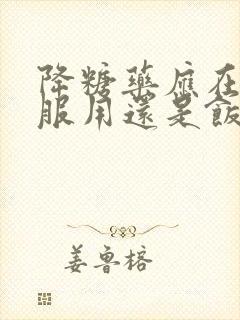 降糖藥應在
服用還是飯
姜魯榕